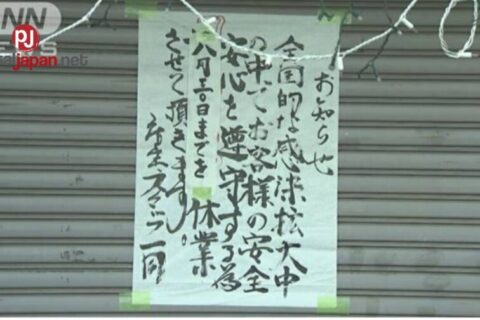 NN
NEWS
PJ
japan.net
お知らせ
全国的な感染拡大中
の中でお客様の安全
安心を遵守する為
八月三〇日までを休業
させて頂きます。
スタッフ一同